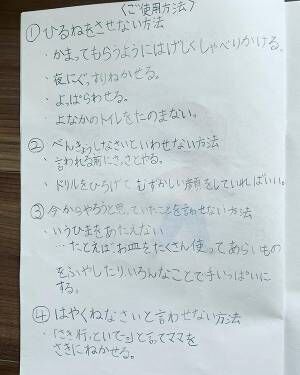 〈ご使用方法〉
① ひるねをさせない方法
・かまってもらうようにはげしくしゃべりかける。
・夜にぐっすりねかせる。
・よっぱらわせる。
・よなかのトイレをたのまない。
② べんきょうしなさいといわせない方法
・言われる前にさっさとやる。
・ドリルをひろげてむずかしい顔をしていればいい。
③ 今からやろうと思っていたことを言わせない方法
・いうひまをあたえない
…たとえばお皿をたくさん使ってあらいもの
をふやしたりいろんなことで手いっぱいに
する。
④ はやくねなさいと言わせない方法
・「さき行っといて〜」と言ってママを
さきにねかせる。